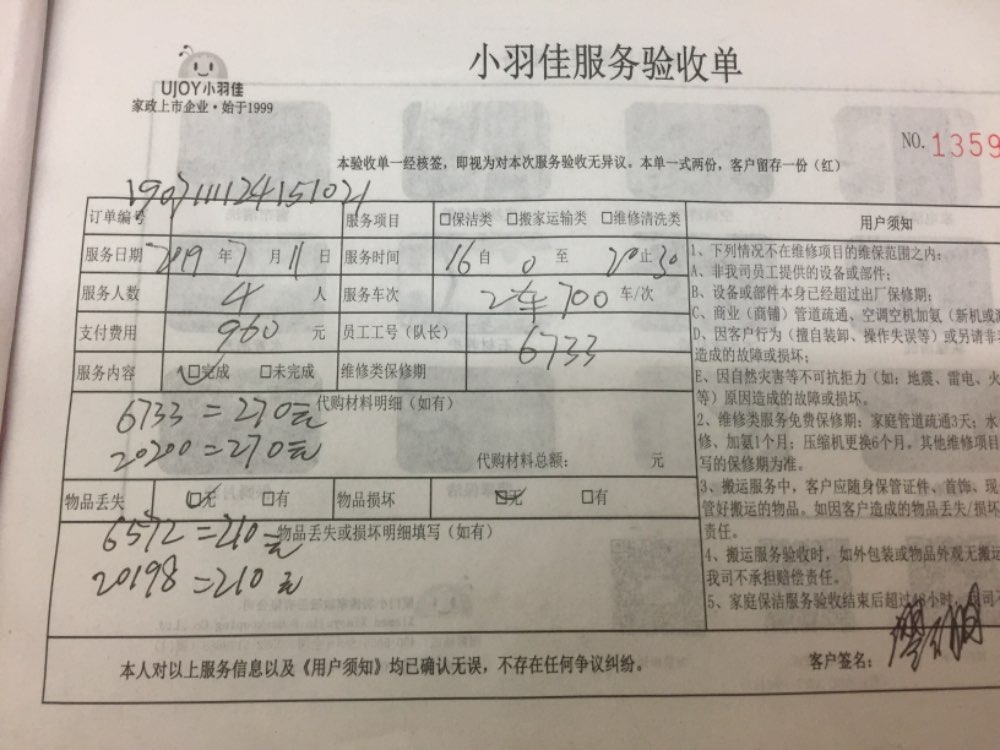 小羽佳服务验收单
UJOY小羽佳
家政上市企业·始于1999
NO.1359
本验收单一经核签，即视为对本次服务验收无异议。本单一式两份，客户留存一份（红）
订单编号 服务项目 □保洁类 □搬家运输类 □维修清洗类
用户须知
服务日期 2019 年 7 月 11 日 服务时间 16 自 0 至 20 止 30
服务人数 4 人 服务车次 2车 700 车/次
支付费用 960 元 员工工号（队长） 6733
服务内容 □完成 □未完成 维修类保修期
代购材料明细（如有）
6733=270元
20200=270元
代购材料总额： 元
物品丢失 □无 □有 物品损坏 □无 □有
物品丢失或损坏明细填写（如有）
6572=210元
20198=210元
1、下列情况不在维修项目的维保范围之内：
A、非我司员工提供的设备或部件；
B、设备或部件本身已经超过出厂保修期；
C、商业（商铺）管道疏通、空调空机加氨（新机或
D、因客户行为（擅自装卸、操作失误等）或另请非
造成的故障或损坏；
E、因自然灾害等不可抗拒力（如：地震、雷电、火
等）原因造成的故障或损坏。
2、维修类服务免费保修期：家庭管道疏通3天；水
修、加氨1个月；压缩机更换6个月，其他维修项目
写的保修期为准。
3、搬运服务中，客户应随身保管证件、首饰、现
管好搬运的物品。如因客户造成的物品丢失/损坏
责任。
4、搬运服务验收时，如外包装或物品外观无搬运
我司不承担赔偿责任。
5、家庭保洁服务验收结束后超过48小时，
本人对以上服务信息以及《用户须知》均已确认无误，不存在任何争议纠纷。
客户签名：